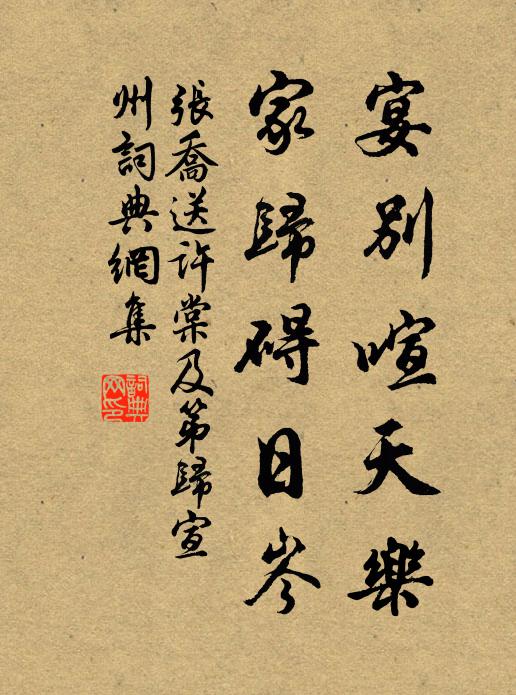 宴別喧天樂
家歸碍日岑
張喬送許棠及第歸宣
州詞典網集
詞典
网印